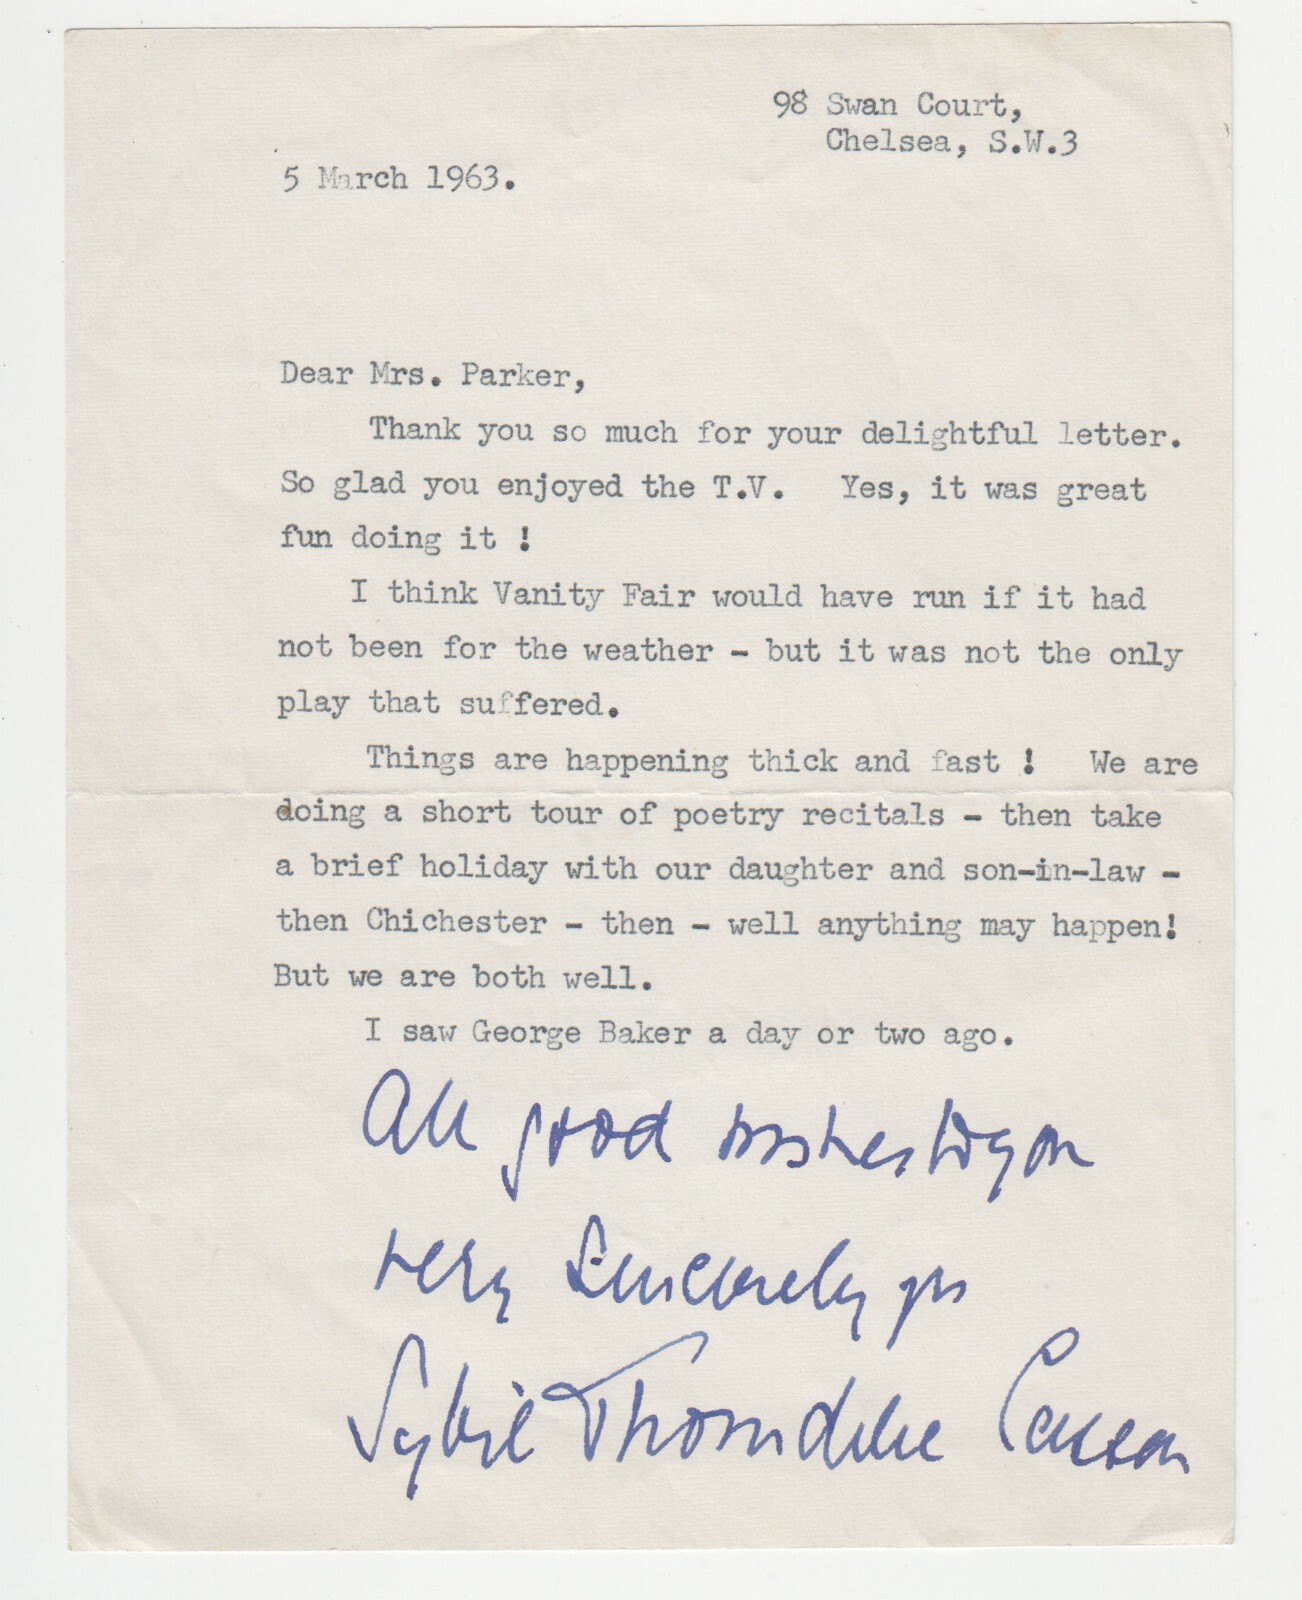 98 Swan Court,
Chelsea, S.W.3
5 March 1963.
Dear Mrs. Parker,
Thank you so much for your delightful letter.
So glad you enjoyed the T.V. Yes, it was great
fun doing it !
I think Vanity Fair would have run if it had
not been for the weather - but it was not the only
play that suffered.
Things are happening thick and fast ! We are
doing a short tour of poetry recitals - then take
a brief holiday with our daughter and son-in-law -
then Chichester - then - well anything may happen!
But we are both well.
I saw George Baker a day or two ago.
All good wishes to you
very Sincerely yrs
Sybil Thorndike Casson